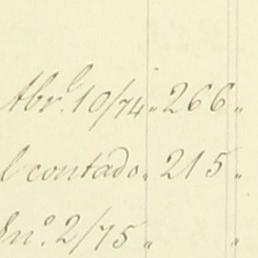 Abr.l 10/74 " 266 "
l contado " 215 "
En.o 2/75 " "